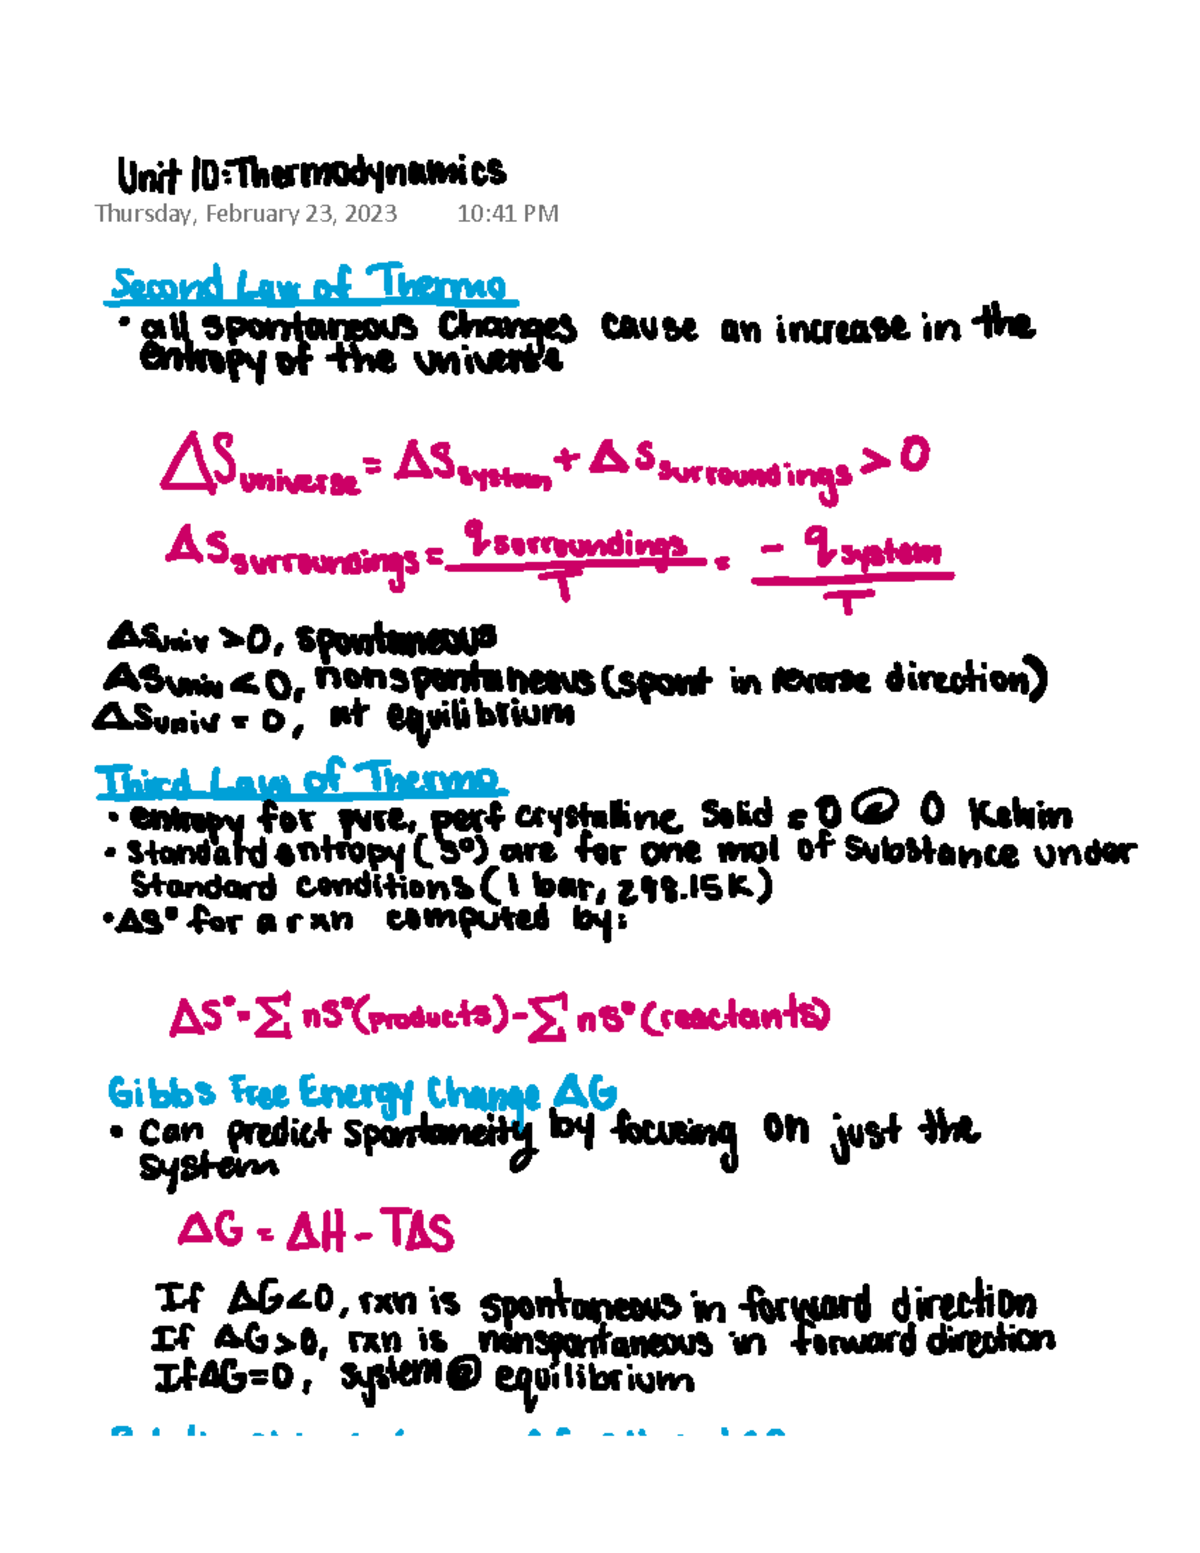 Unit 10: Thermodynamics
Thursday, February 23, 2023 10:41 PM
Second Law of Thermo
• all spontaneous changes cause an increase in the
entropy of the universe
ΔSuniverse = ΔSsystem + ΔSsurroundings > 0
ΔSsurroundings = qsorroundings / T = - qsystem / T
ΔSuniv > 0, spontaneous
ΔSuniv < 0, nonspontaneous (spont in reverse direction)
ΔSuniv = 0, at equilibrium
Third Law of Thermo
• entropy for pure, perf crystalline Solid = 0 @ 0 Kelvin
• Standard entropy (S°) are for one mol of Substance under
Standard conditions (1 bar, 298.15K)
• ΔS° for a rxn computed by:
ΔS° = Σ nS°(products) - Σ nS°(reactants)
Gibbs Free Energy Change ΔG
• Can predict spontaneity by focusing on just the
system
ΔG = ΔH - TΔS
If ΔG<0, rxn is spontaneous in forward direction
If ΔG>0, rxn is nonspontaneous in forward direction
If ΔG=0, system @ equilibrium